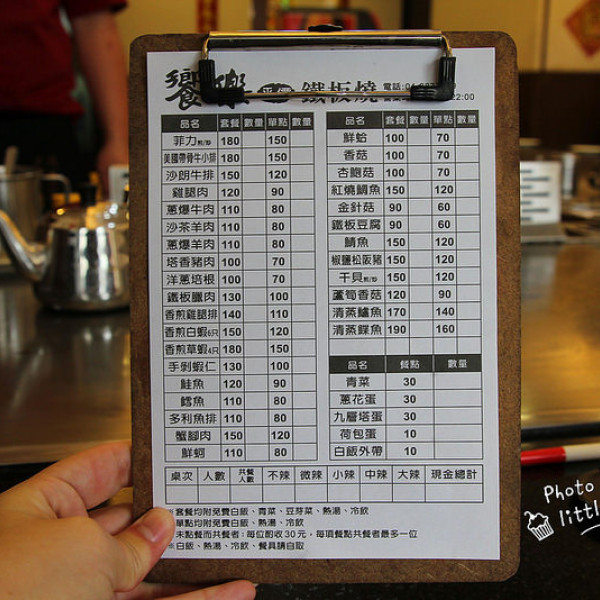 饗樂 平價 鐵板燒 電話:04
22:00
品名 套餐 數量 單點 數量
菲力 180 150
美國帶骨牛小排 180 150
沙朗牛排 150 120
雞腿肉 120 90
蔥爆牛肉 110 80
沙茶羊肉 110 80
蔥爆羊肉 110 80
塔香豬肉 100 70
洋蔥培根 100 70
鐵板臘肉 130 100
香煎雞腿排 140 110
香煎白蝦6只 150 120
香煎草蝦4只 180 150
手剝蝦仁 130 100
鮭魚 120 90
鱈魚 110 80
多利魚排 110 80
蟹腳肉 150 120
鮮蚵 110 80
品名 套餐 數量 單點 數量
鮮蛤 100 70
香菇 100 70
杏鮑菇 100 70
紅燒鯛魚 150 120
金針菇 90 60
鐵板豆腐 90 60
鯖魚 150 120
椒鹽松阪豬 150 120
干貝 150 120
蘆筍香菇 120 90
清蒸鱸魚 170 140
清蒸鰈魚 190 160
品名 餐點 數量
青菜 30
蔥花蛋 30
九層塔蛋 30
荷包蛋 10
白飯外帶 10
桌次 人數 共餐人數 不辣 微辣 小辣 中辣 大辣 現金總計
※套餐均附免費白飯、青菜、豆芽菜、熱湯、冷飲
單點均附免費白飯、熱湯、冷飲
未點餐而共餐者:每位酌收30元,每項餐點共餐者最多一位
※白飯、熱湯、冷飲、餐具請自取
Photo
little